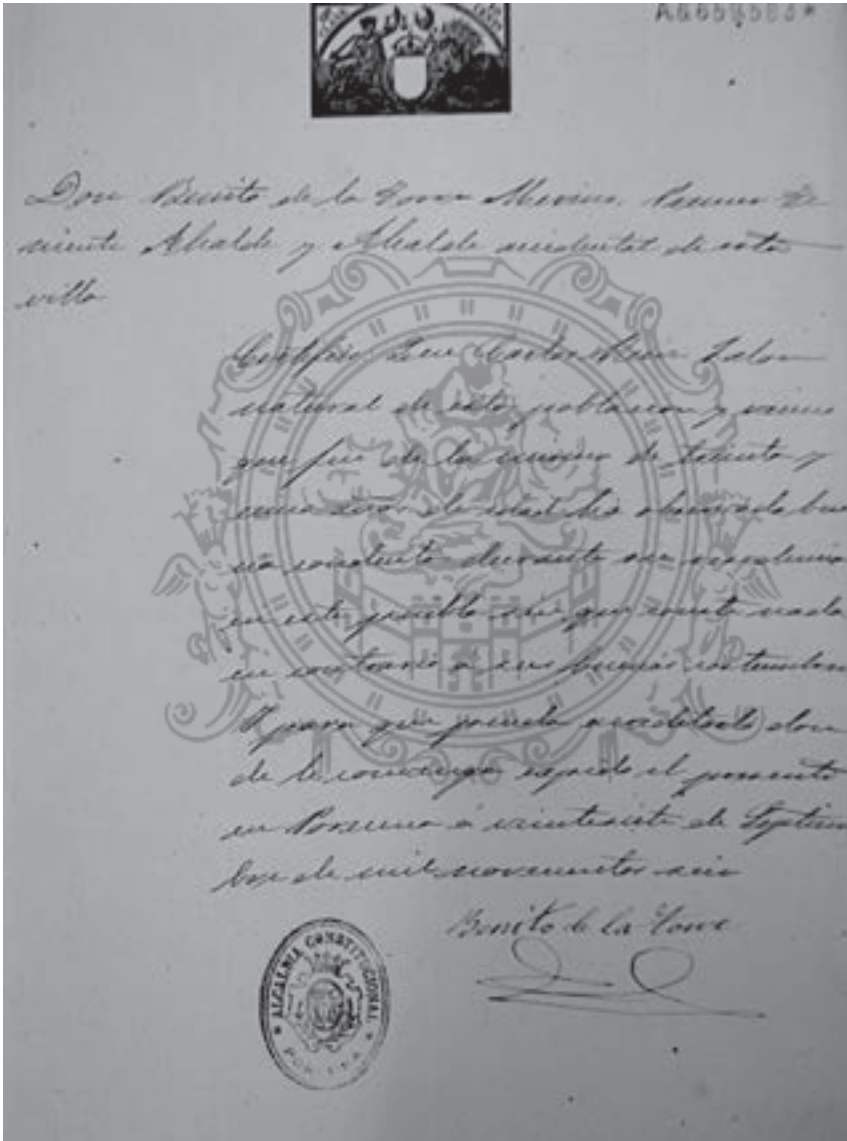 A6659583*
Don Benito de la Torre Merino, Primer Te
niente Alcalde y Alcalde accidental de esta
villa
Certifico: Que Carlos Salas
natural de esta poblacion y vecino
que fue de la misma de treinta y
años de edad ha observado bue
na conducta durante su residencia
en este pueblo sin que conste nada
en contrario a sus buenas costumbres
Y para que pueda acreditarlo don
de le convenga expido el presente
en Porcuna á veintisiete de Septiem
bre de mil novecientos seis
Benito de la Torre
ALCALDIA CONSTITUCIONAL
PORCUNA